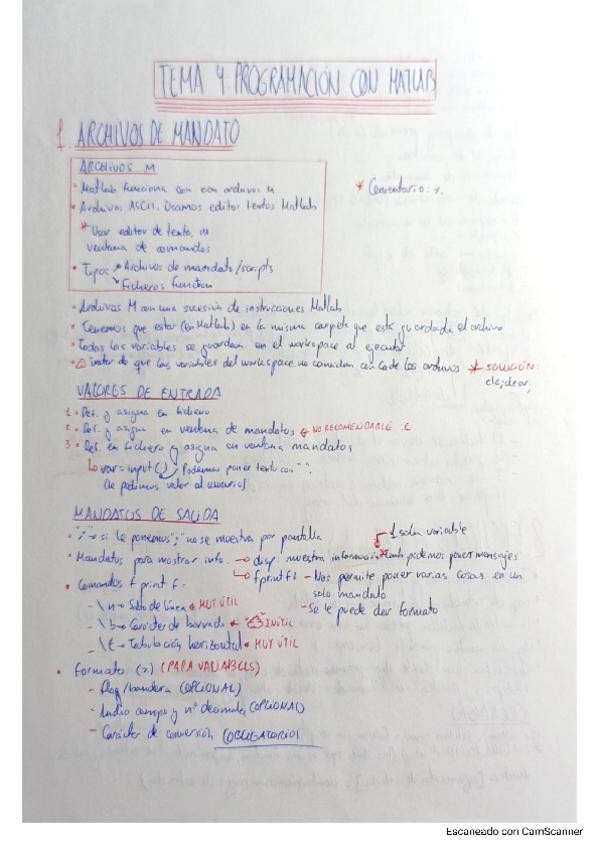 TEMA 4: PROGRAMACIÓN CON MATLAB
1. ARCHIVOS DE MANDATO
ARCHIVOS M
• Matlab funciona con con archivos M
* Comentario: %
• Archivos ASCII. Usamos editor textos Matlab
* Usar editor de texto, no
ventana de comandos
• Tipos: Archivos de mandato/scripts
Ficheros function
• Archivos M con una sucesión de instrucciones Matlab
• Tenemos que estar (en Matlab) en la misma carpeta que está guardada el archivo
• Todas las variables se guardan en el workspace al ejecutar
• Tratar de que las variables del workspace no coincidan con las de los archivos * SOLUCIÓN:
clc; clear;
VALORES DE ENTRADA
1 • Def. y asigna en fichero
2 • Def. y asigna en ventana de mandatos NO RECOMENDABLE :(
3 • Def. en fichero y asigna en ventana mandatos
var = input ( ) Podemos poner texto con ' '
(le pedimos valor al usuario)
MANDATOS DE SALIDA
• ";" → si le ponemos ";" no se muestra por pantalla
1 sola variable
• Mandatos para mostrar info. → disp: muestra información podemos poner mensajes
fprintf: - Nos permite poner varias cosas en un
solo mandato
• Comandos fprintf:
- Se le puede dar formato
- \n → Salto de línea MUY ÚTIL
- \b → Carácter de borrado INÚTIL
- \t → Tabulación horizontal MUY ÚTIL
• Formato: (%) (PARA VARIABLES)
- Flag/bandera (OPCIONAL)
- Ancho campo y nº decimales (OPCIONAL)
- Carácter de conversión (OBLIGATORIO)
Escaneado con CamScanner